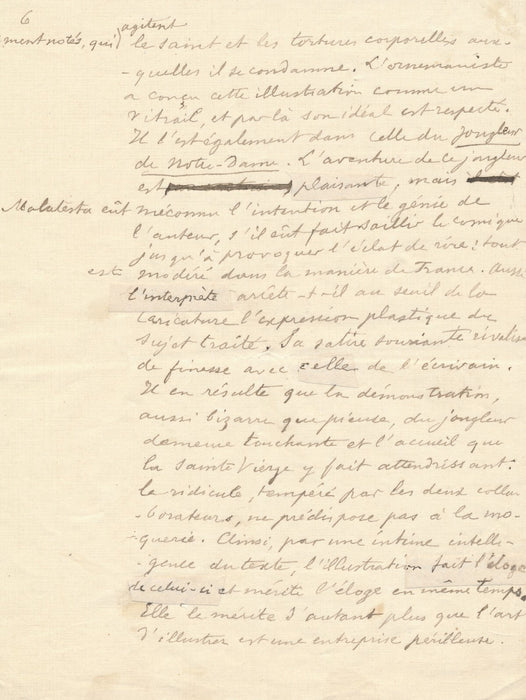 6
agitent
ment notés, qui le saint et les tortures corporelles aux-
-quelles il se condamne. L'ornemaniste
a conçu cette illustration comme un
vitrail, et par là son idéal est respecté.
Il l'est également dans celle du Jongleur
de Notre-Dame. L'aventure de ce jongleur
est plaisante, mais
Malatesta eût méconnu l'intention et le génie de
l'auteur, s'il eût fait saillir le comique
jusqu'à provoquer l'éclat de rire : tout
est modéré dans la manière de France. Aussi
l'interprète arrête-t-il au seuil de la
caricature l'expression plastique du
sujet traité. Sa satire souriante rivalise
de finesse avec celle de l'écrivain.
Il en résulte que la démonstration,
aussi bizarre que pieuse, du jongleur
demeure touchante et l'accueil que
la Sainte Vierge y fait attendrissant.
Le ridicule, tempéré par les deux colla-
-borateurs, ne prédispose pas à la mo-
-querie. Ainsi, par une intime intelli-
-gence du texte, l'illustration fait l'éloge
de celui-ci et mérite l'éloge en même temps.
Elle le mérite d'autant plus que l'art
d'illustrer est une entreprise périlleuse.